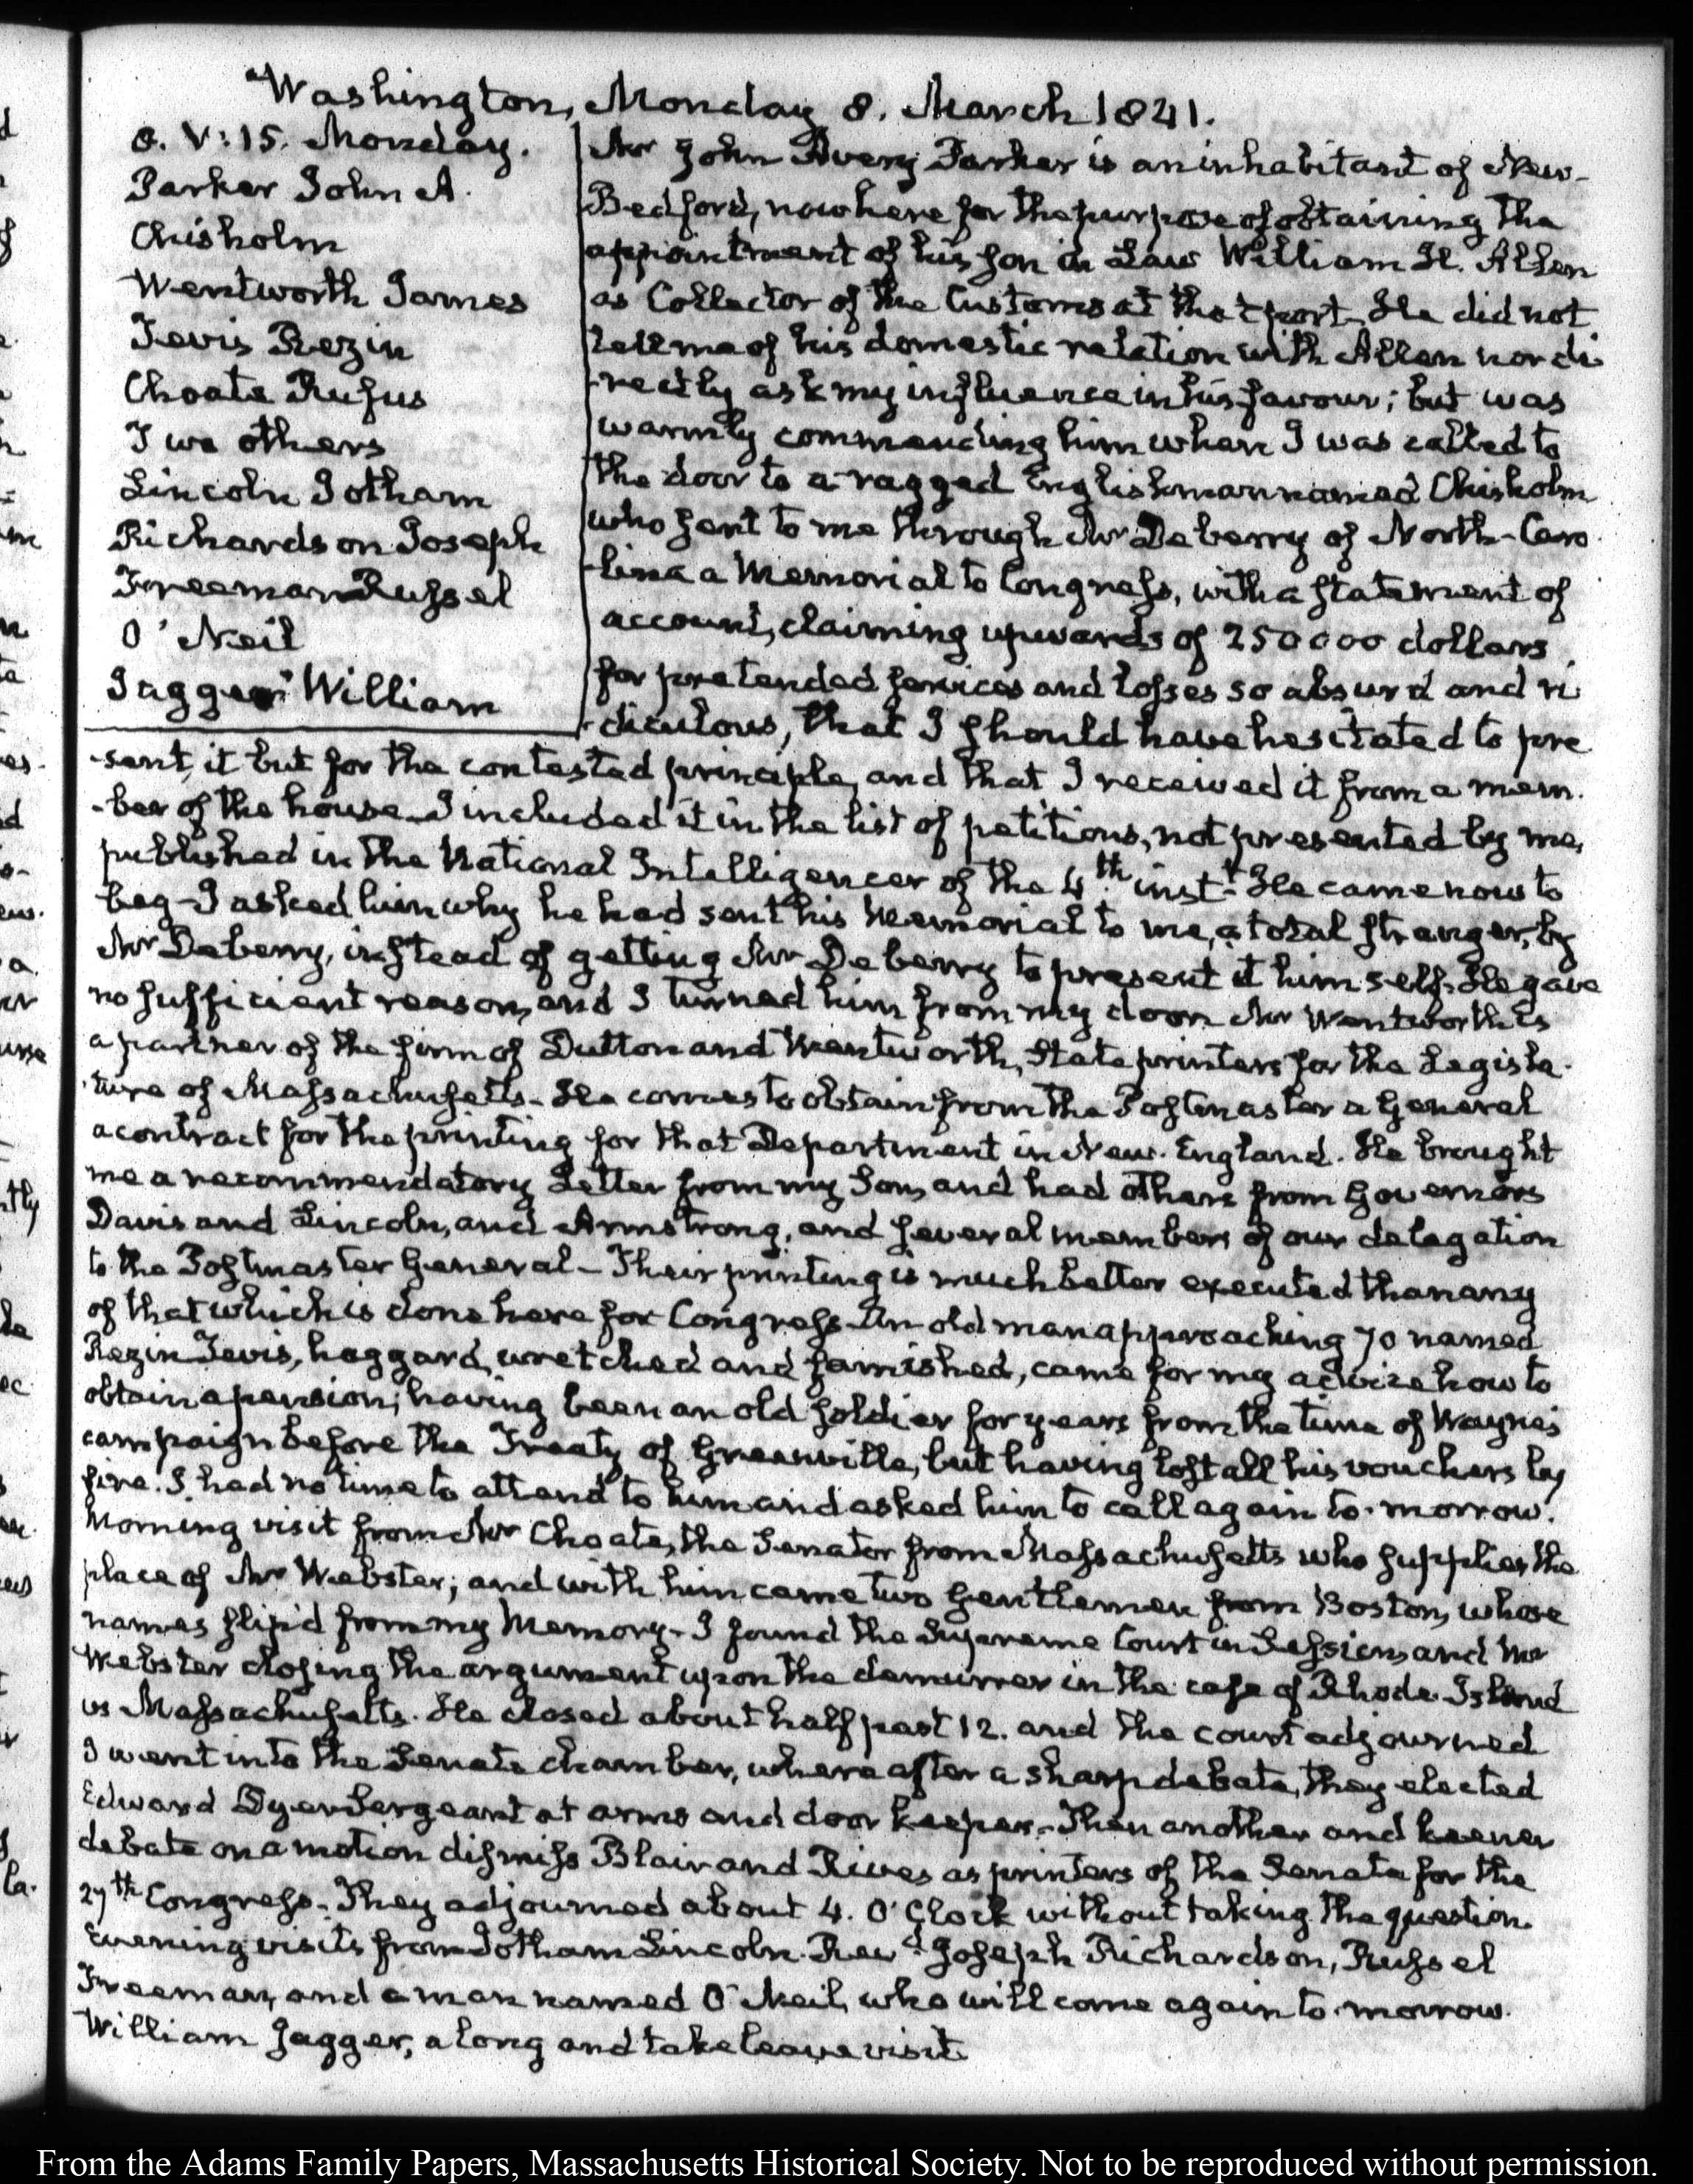 Washington, Monday 8. March 1841.
8. V:15. Monday.
Parker John A.
Chisholm
Wentworth James
Tevis Rezin
Choate Rufus
Two others
Lincoln Jotham
Richardson Joseph
Freeman Russel
O'Neil
Jagger William
Mr John Avery Parker is an inhabitant of New-
Bedford, now here for the purpose of obtaining the
appointment of his son in Law William H. Allen
as Collector of the Customs at that port. He did not
tell me of his domestic relation with Allen nor di
-rectly ask my influence in his favour; but was
warmly commending him when I was called to
the door to a ragged Englishman named Chisholm
who sent to me through Mr Deberry of North-Caro
-lina a Memorial to Congress, with a statement of
account, claiming upwards of 250000 dollars
for pretended services and losses so absurd and ri
-diculous, that I should have hesitated to pre
-sent it but for the contested principle, and that I received it from a mem.
-ber of the house. I included it in the list of petitions, not presented by me,
published in the National Intelligencer of the 4th inst. He came now to
beg - I asked him why he had sent his Memorial to me, a total stranger, by
Mr Deberry, instead of getting Mr Deberry to present it himself. He gave
no sufficient reason, and I turned him from my door. Mr Wentworth is
a partner of the firm of Dutton and Wentworth, State printers for the Legisla-
-ture of Massachusetts. He comes to obtain from the Postmaster General
a contract for the printing for that Department in New-England. He brought
me a recommendatory Letter from my Son, and had others from Governors
Davis and Lincoln, and Armstrong, and several members of our delegation
to the Postmaster General - Their printing is much better executed than any
of that which is done here for Congress. An old man approaching 70 named
Rezin Tevis, haggard, wretched and famished, came for my advice how to
obtain a pension; having been an old soldier for years from the time of Wayne's
campaign before the Treaty of Greenville, but having lost all his vouchers by
fire. I had no time to attend to him and asked him to call again to-morrow.
Morning visit from Mr Choate, the Senator from Massachusetts who supplies the
place of Mr Webster; and with him came two Gentlemen from Boston, whose
names slip'd from my Memory - I found the Supreme Court in Session, and Mr
Webster closing the argument upon the demurrer in the case of Rhode-Island
vs Massachusetts. He closed about half past 12. and the court adjourned
I went into the Senate chamber, where after a sharp debate, they elected
Edward Dyer Sergeant at arms and door keeper. Then another and keener
debate on a motion dismiss Blair and Rives as printers of the Senate for the
27th Congress. They adjourned about 4. O'Clock without taking the question.
Evening visits from Jotham Lincoln. Revd Joseph Richardson, Russel
Freeman, and a man named O'Neil, who will come again to-morrow.
William Jagger, a long and take leave visit.
From the Adams Family Papers, Massachusetts Historical Society. Not to be reproduced without permission.